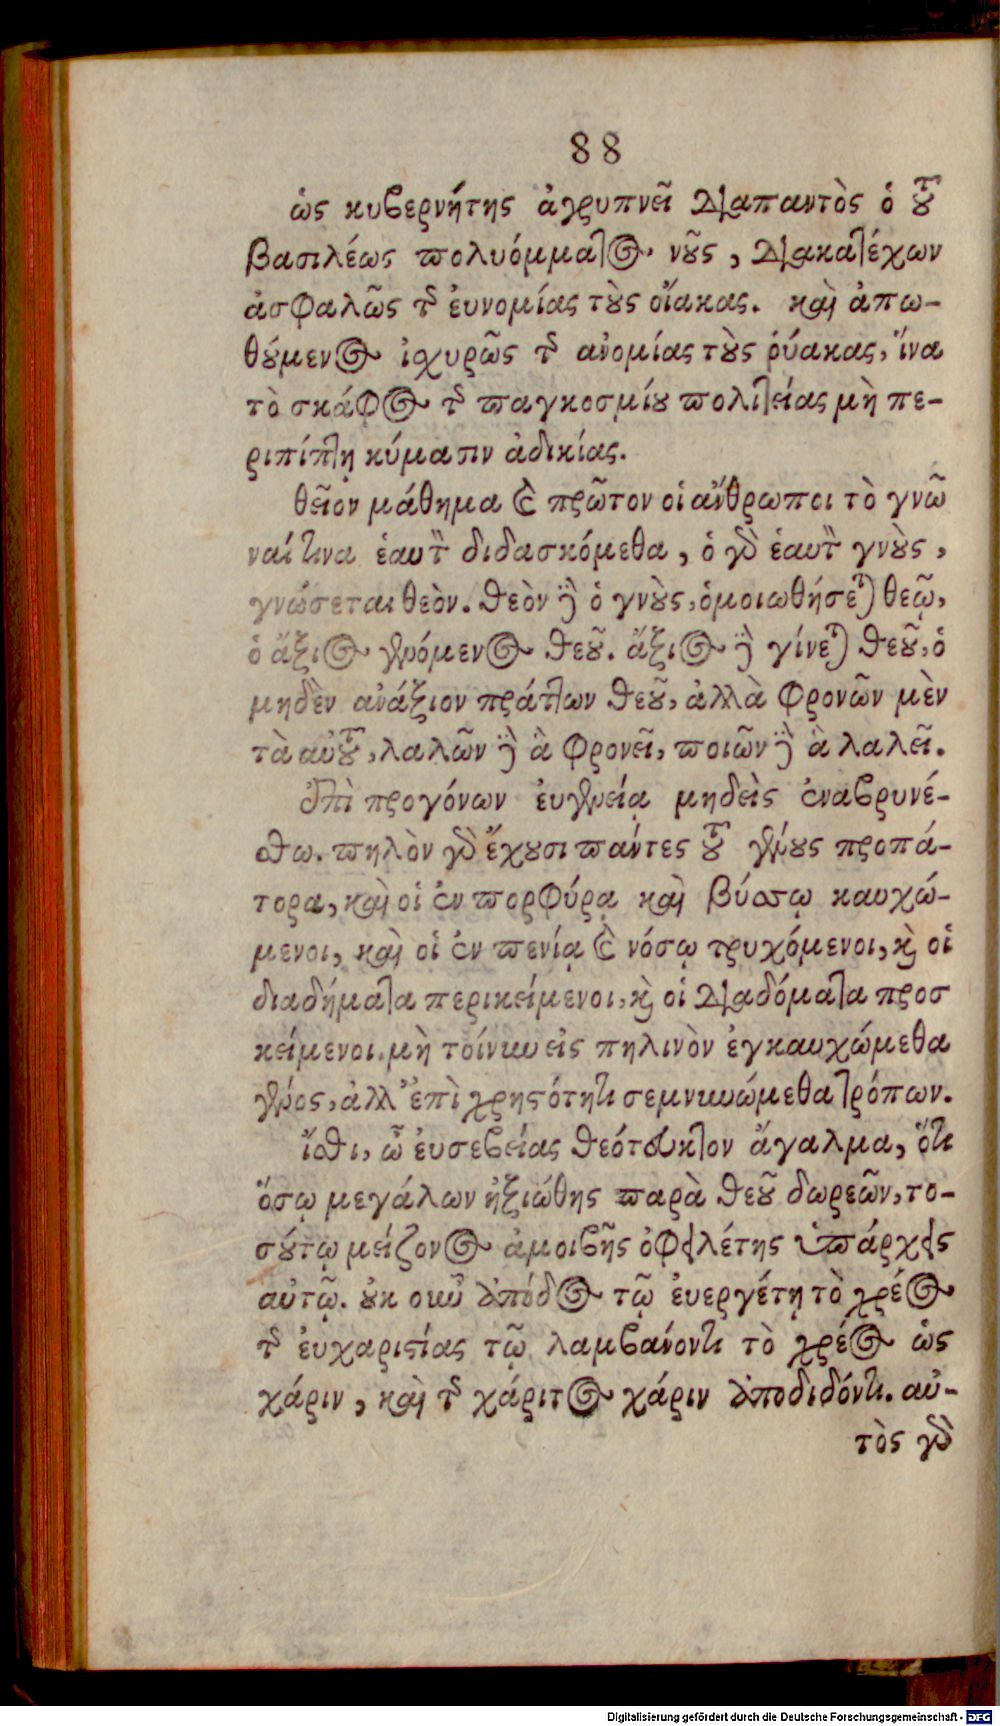 88
ὡς κυβερνήτης ἀγρυπνεῖ διαπαντὸς ὁ τοῦ
βασιλέως πολυόμματος νοῦς, διακατέχων
ἀσφαλῶς τῆς ἐυνομίας τοὺς οἴακας. καὶ ἀπω-
θούμενος ἰσχυρῶς τῆς ἀνομίας τοὺς ῥύακας, ἵνα
τὸ σκάφος τῆς παγκοσμίου πολιτείας μὴ πε-
ριπίπτῃ κύμασιν ἀδικίας.
θεῖον μάθημα καὶ πρῶτον οἱ ἄνθρωποι τὸ γνῶ
ναί τινα ἑαυτὸν διδασκόμεθα, ὁ γὰρ ἑαυτὸν γνοὺς,
γνώσεται θεὸν. θεὸν δὲ ὁ γνοὺς, ὁμοιωθήσεται θεῷ,
ὁ ἄξιος γενόμενος θεοῦ. ἄξιος δὲ γίνεται θεοῦ, ὁ
μηδὲν ἀνάξιον πράττων θεοῦ, ἀλλὰ φρονῶν μὲν
τὰ αὐτοῦ, λαλῶν δὲ ἃ φρονεῖ, ποιῶν δὲ ἃ λαλεῖ.
ἐπὶ προγόνων ἐυγενείᾳ μηδεὶς ἐναβρυνέ-
σθω. πηλὸν γὰρ ἔχουσι πάντες τοῦ γένους προπά-
τορα, καὶ οἱ ἐν πορφύρᾳ καὶ βύσσῳ καυχώ-
μενοι, καὶ οἱ ἐν πενίᾳ καὶ νόσῳ τρυχόμενοι, καὶ οἱ
διαδήματα περικείμενοι, καὶ οἱ διαδόματα προσ
κείμενοι. μὴ τοίνυν εἰς πηλινὸν ἐγκαυχώμεθα
γένος, ἀλλ' ἐπὶ χρηστότητι σεμνυνώμεθα τρόπων.
ἴσθι, ὦ ἐυσεβείας θεότευκτον ἄγαλμα, ὅτι
ὅσῳ μεγάλων ἠξιώθης παρὰ θεοῦ δωρεῶν, το-
σούτῳ μείζονος ἀμοιβῆς ὀφειλέτης ὑπάρχεις
αὐτῷ. οὐκ οὖν ἀπόδος τῷ ἐυεργέτῃ τὸ χρέος
τῆς ἐυχαριστίας τῷ λαμβάνοντι τὸ χρέος ὡς
χάριν, καὶ τῆς χάριτος χάριν ἀποδιδόντι. αὐ-
τὸς γὰρ
Digitalisierung gefördert durch die Deutsche Forschungsgemeinschaft - DFG